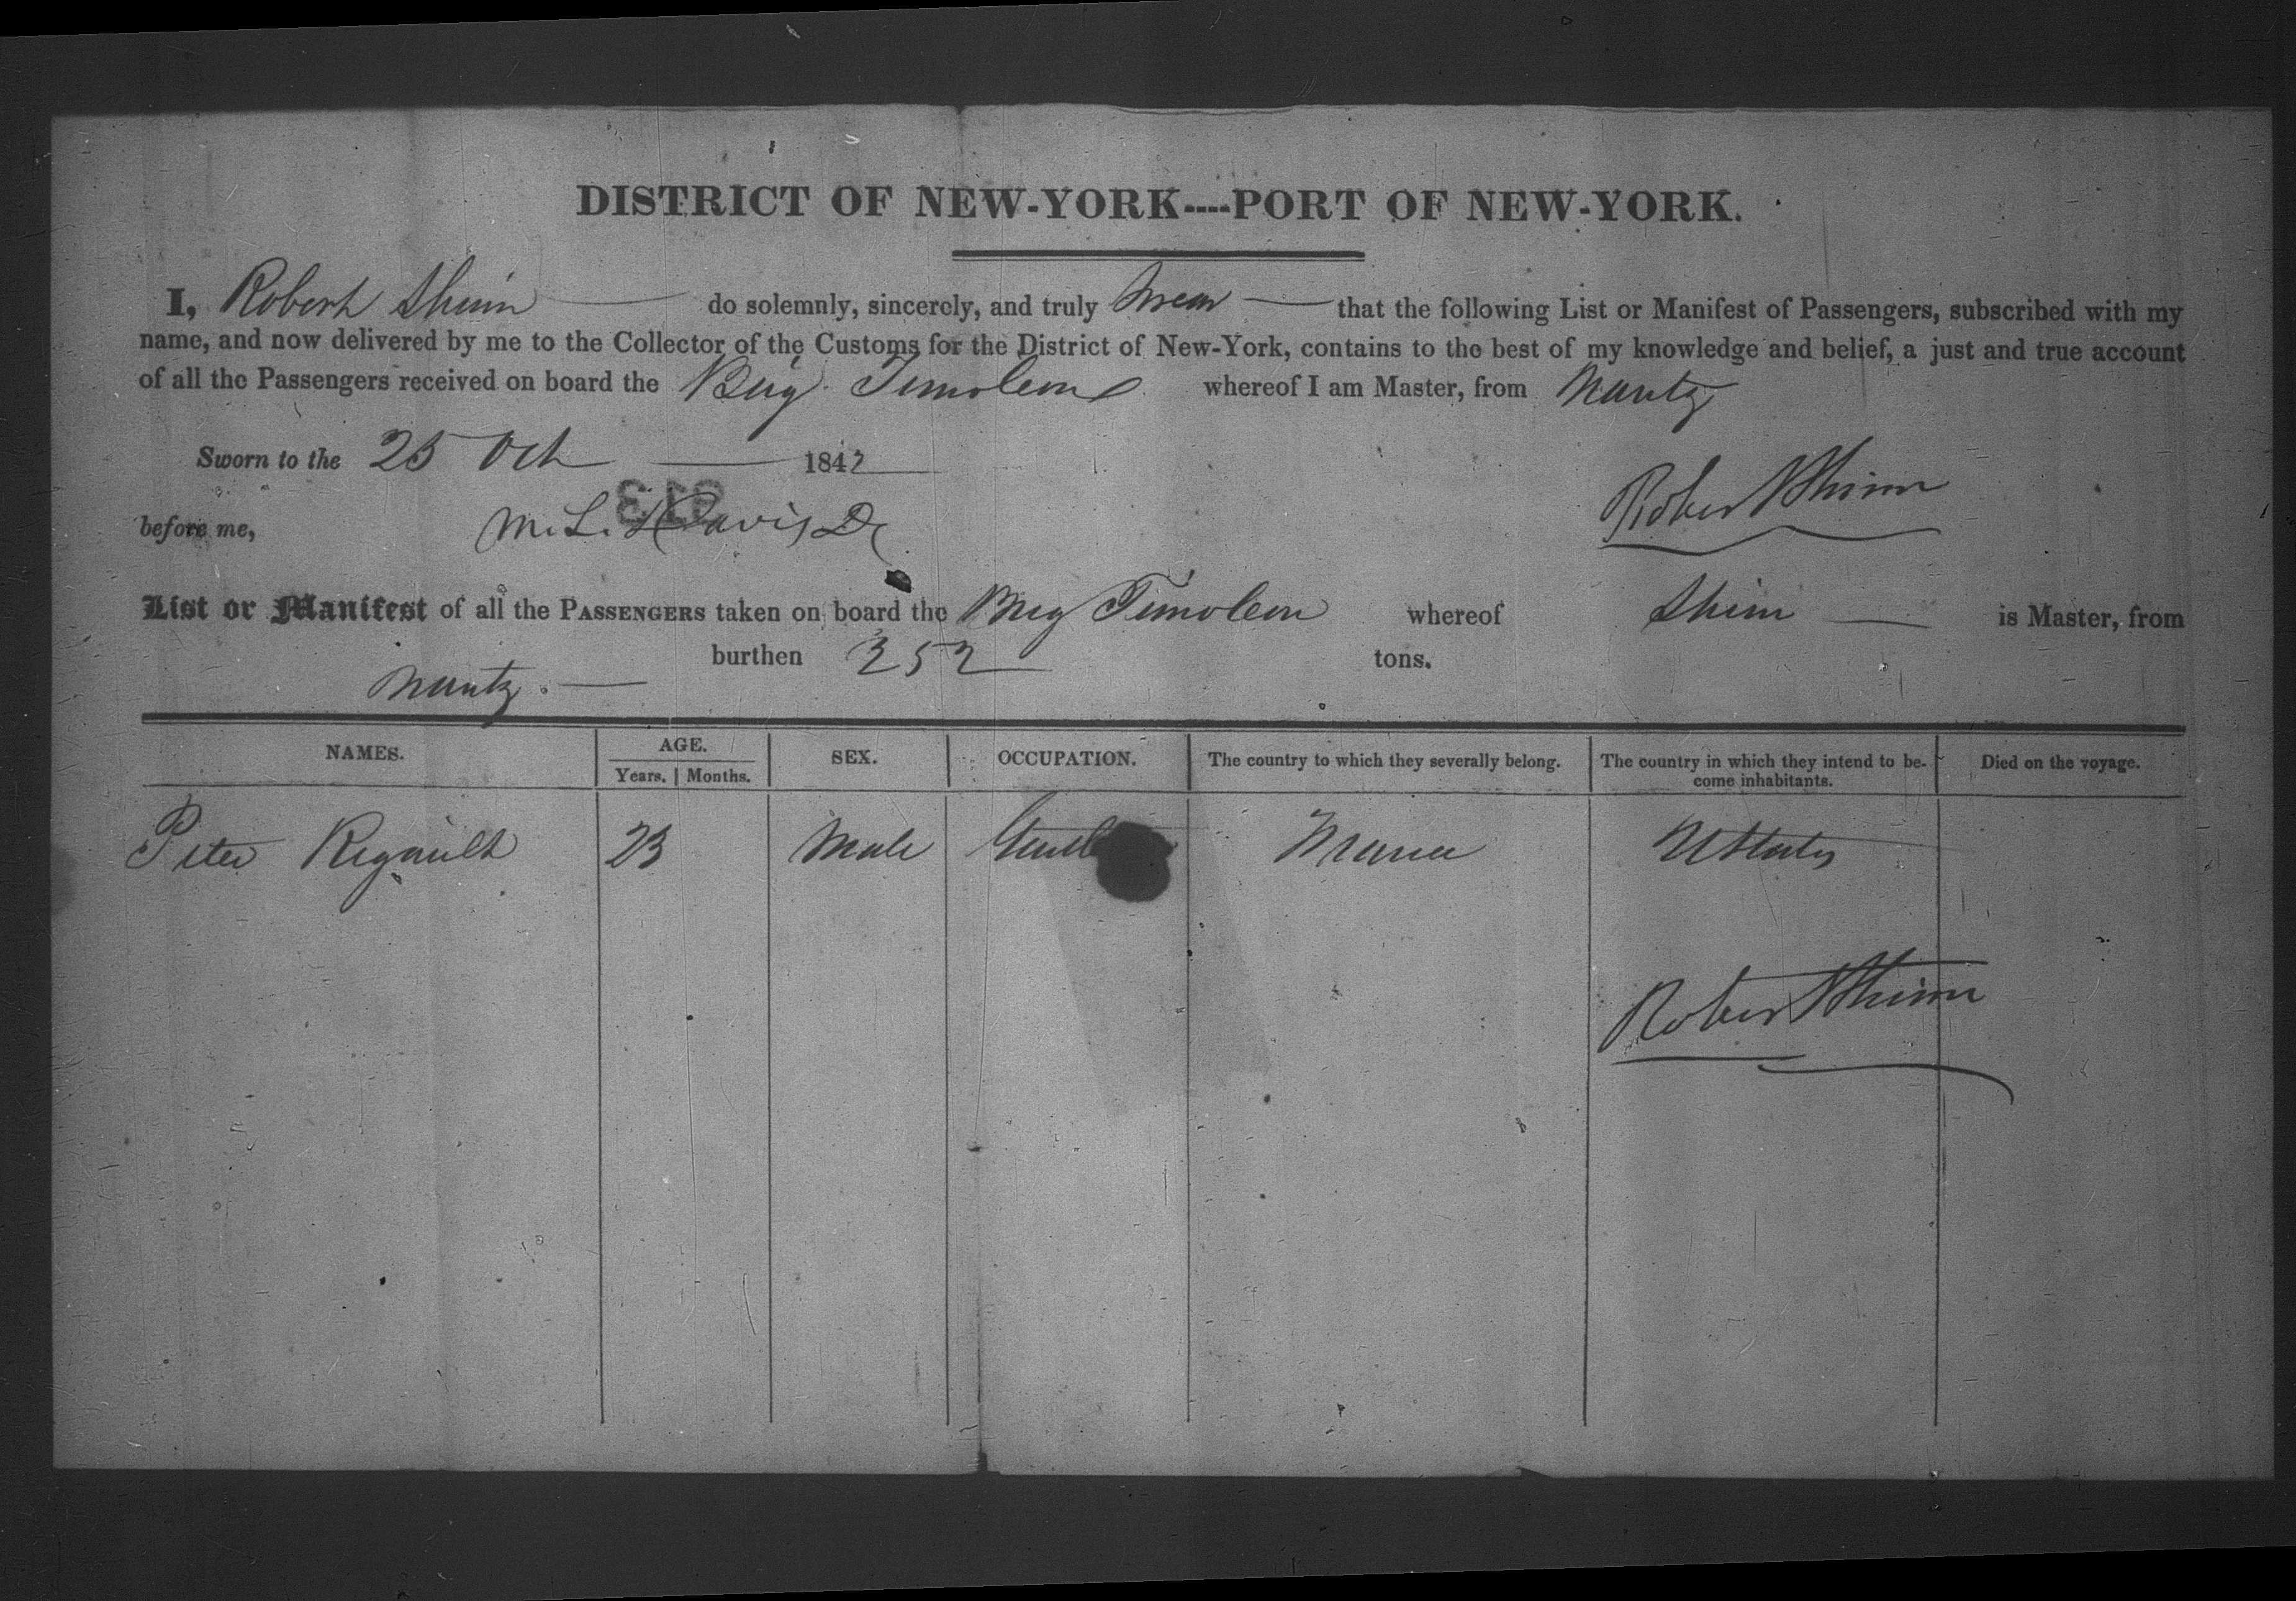 DISTRICT OF NEW-YORK----PORT OF NEW-YORK.
I, Robert Shinn do solemnly, sincerely, and truly swear that the following List or Manifest of Passengers, subscribed with my
name, and now delivered by me to the Collector of the Customs for the District of New-York, contains to the best of my knowledge and belief, a just and true account
of all the Passengers received on board the Brig Timoleon whereof I am Master, from Nantz
Sworn to the 25 Oct 1842
Robert Shinn
before me, M. L. Davis
List or Manifest of all the PASSENGERS taken on board the Brig Timoleon whereof Shinn is Master, from
Nantz. burthen 252 tons.
NAMES. AGE. SEX. OCCUPATION. The country to which they severally belong. The country in which they intend to be- Died on the voyage.
Years. Months. come inhabitants.
Peter Regnault 23 Male France U States
Robert Shinn